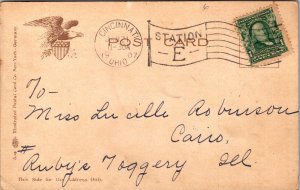 CINCINNATI
OHIO
STATION
E
POST CARD
To-
Miss Lucille Robinson
Cairo,
# Ruby's Toggery Ill
This Side for the Address Only.